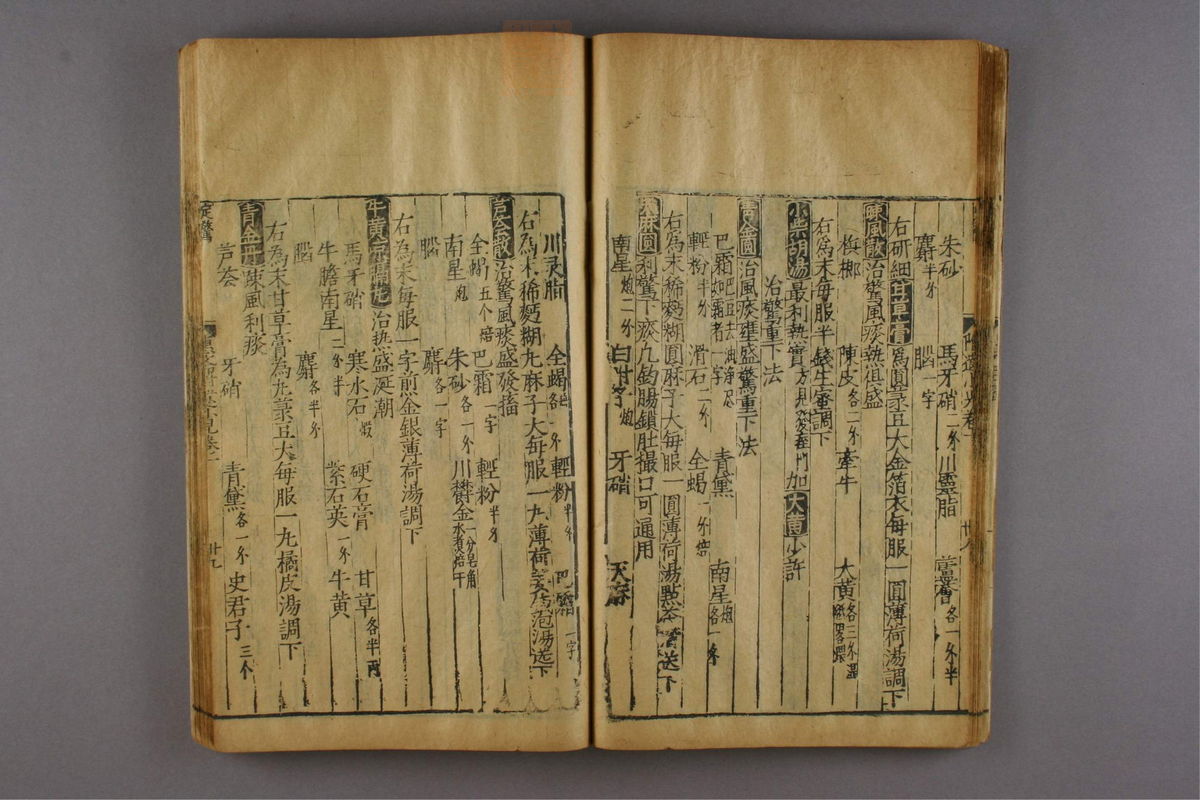 朱砂 馬牙硝二分 川靈脂 蘆薈各一分半
麝半分 腦一字
右研細甘草膏為圓菉豆大金箔衣每服一圓薄荷湯調下
疎風散治驚風痰熱俱盛
檳榔 陳皮各二分 牽牛 大黃各三分
右為末每服半錢生蜜調下
小柴胡湯最利熱實 加大黃少許
治驚重下法
青金圓治風痰壅盛驚重下法
巴霜巴豆去油淨尽如霜者一字 青黛 南星炮各一分
輕粉半分 滑石二分 全蝎一分焙
右為末稀麪糊圓麻子大每服一圓薄荷湯點茶送下
天麻圓利驚下痰九釣腸鎖肚撮口可通用
南星炮二分 白附子炮 牙硝 天麻
川灵脂 全蝎各一分 輕粉半分 巴霜一字
右為末稀麪糊丸麻子大每服一丸薄荷姜泡湯送下
芦薈散治驚風痰盛發搐
全蝎五个焙 巴霜一字 輕粉半分
南星炮 朱砂各一分 川欝金一分皂角水煮焙干
腦 麝各一字
右為末每服一字煎金銀薄荷湯調下
牛黃 治热盛涎潮
馬牙硝 寒水石煅 硬石膏 甘草各半兩
牛膽南星二分 紫石英一分 牛黃
腦 麝各半分
右為末甘草膏為丸菉豆大每服一丸橘皮湯調下
青金丹疎風利痰
芦薈 牙硝 青黛各一分 史君子三个
廿九